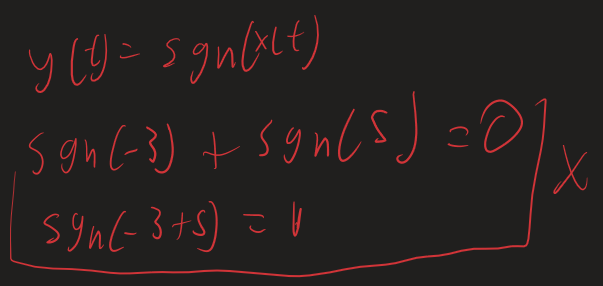 y(t) = sgn(x(t)
sgn(-3) + sgn(5) = 0
sgn(-3+5) = 1
X